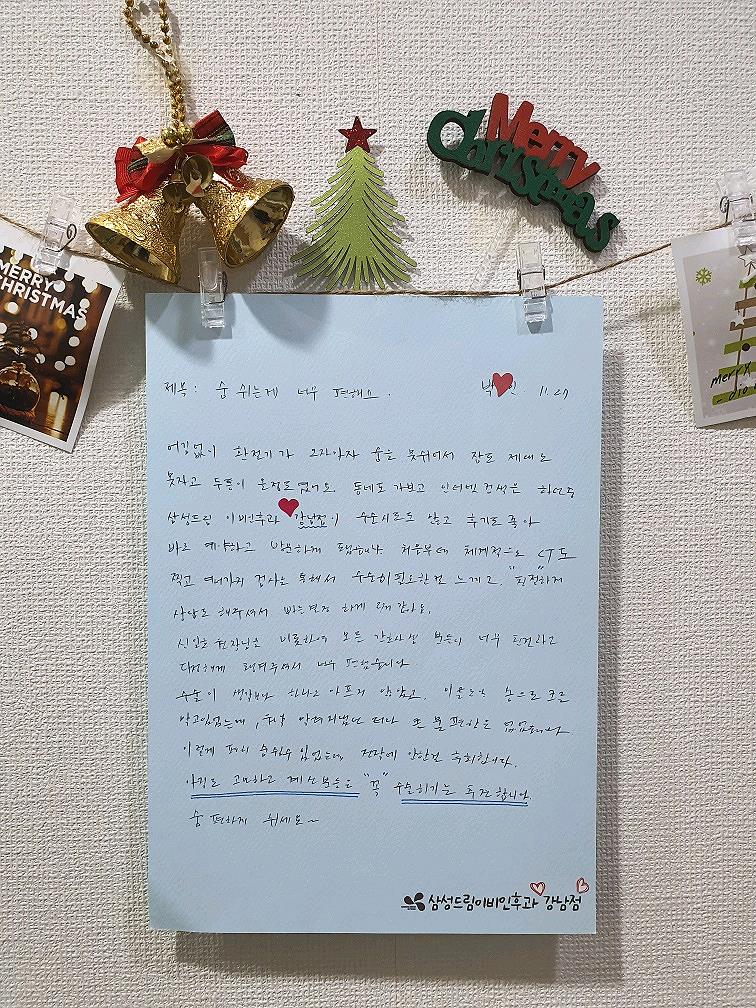 Merry
Christmas
MERRY
CHRISTMAS
merry
제목: 숨 쉬는게 너무 편해요. 박 11.27
어김없이 환절기가 오자마자 숨을 못쉬어서 잠도 제대로
못자고 두통이 올정도였어요. 동네도 가보고 인터넷 검색을 하던중
삼성드림 이비인후과 강남점이 수술시로도 않고 후기도 좋아
바로 예약하고 방문하게 됐습니다. 처음부터 체계적으로 CT도
찍고 여러가지 검사를 통해서 수술이 필요한걸 느끼고, "친절하게"
상담도 해주셔서 바로 결정 하게 된거 같아요.
원장님을 비롯하여 모든 간호사 분들이 너무 친절하고
다정하게 챙겨주셔서 너무 편했습니다
수술이 생각보다 하나도 아프지 않았고, 이틀동안 솜으로 코를
막고있었는데, 하루 지나니 또 불편함은 없었습니다
이렇게 편히 숨쉴수 있었는데 진작에 안한건 후회합니다.
아직도 고민하고 계신 분들은 "꼭" 수술하기를 추천합니다
숨 편하게 쉬세요~
삼성드림이비인후과 강남점